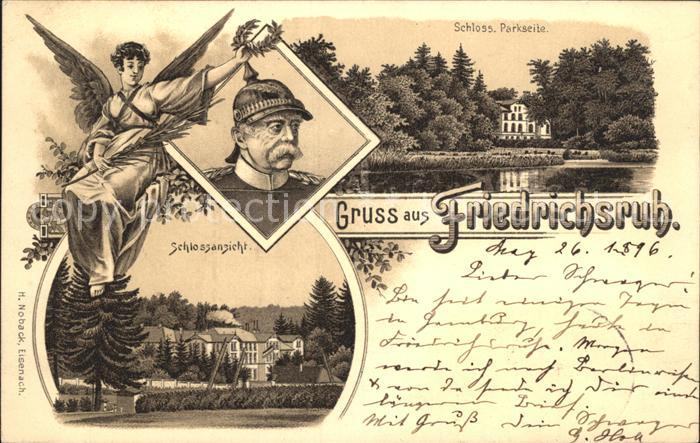 Schloss. Parkseite.
Gruss aus Friedrichsruh.
Schlossansicht.
H. Noback, Eisenach.
May 26. 1896.
Lieber Schwager!
Bin seit einigen Tagen
in Hamburg, heute in
Friedrichsruh. Morgen
werde ich nach Berlin
& von da sende ich Dir einen
längeren Brief.
Mit Gruß Dein Schwager